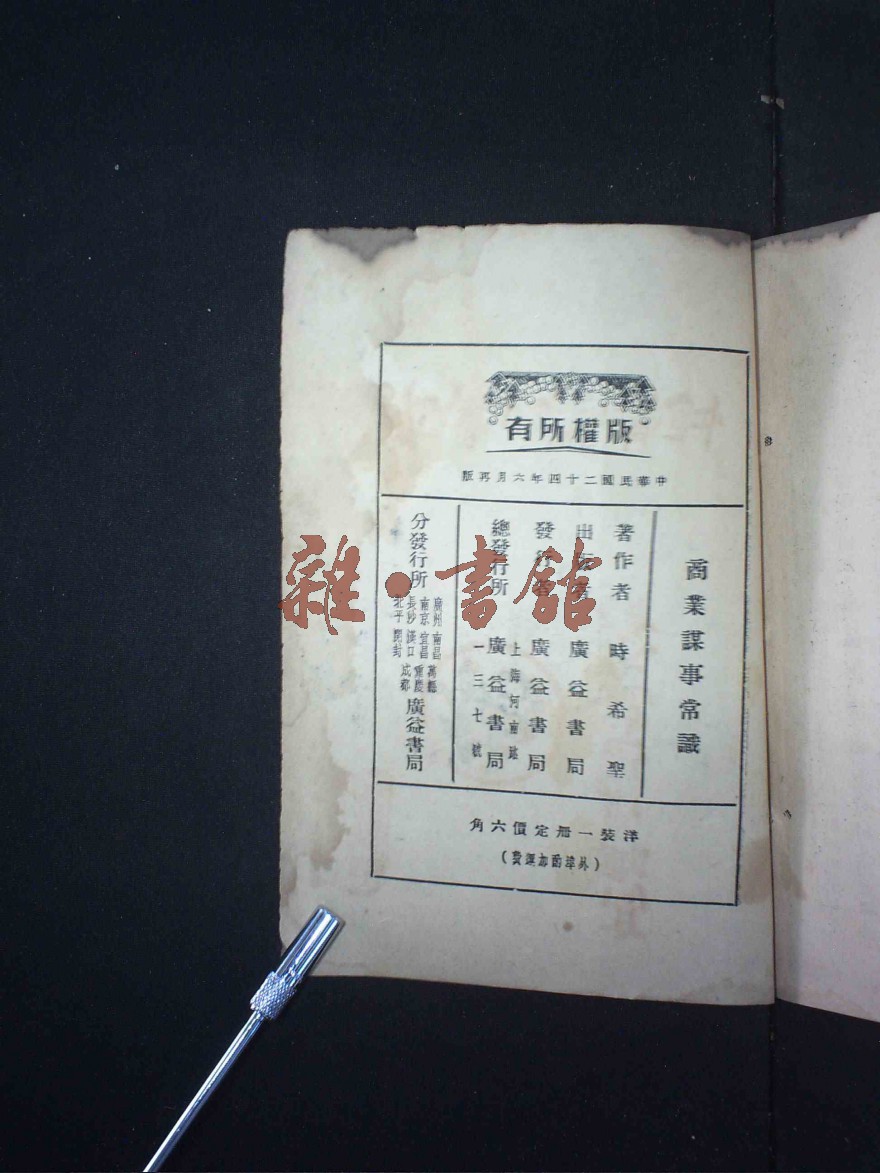 版權所有
中華民國二十四年六月再版
商業謀事常識
著作者 時希聖
出版者 廣益書局
發行者 廣益書局
總發行所 上海河南路一三七號 廣益書局
分發行所 廣州 南昌 萬縣 南京 宜昌 重慶 長沙 漢口 成都 北平 開封 廣益書局
洋裝一冊定價六角
(外埠酌加運費)
雜·書館